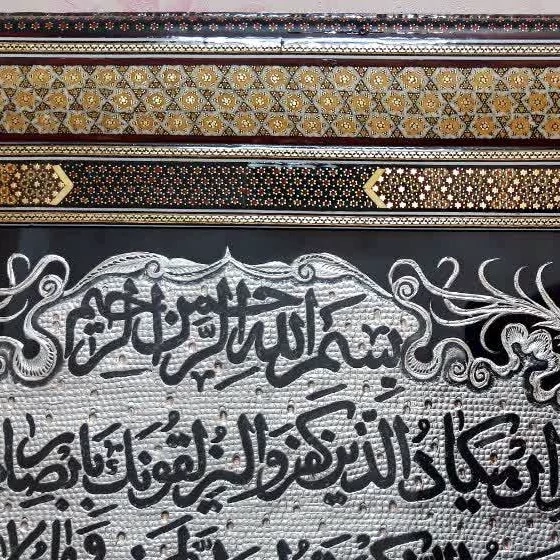 بِسْمِ اللهِ الرَّحْمنِ الرَّحیمِ
اِنْ یَکادُ الَّذینَ کَفَرُوا لَیُزْلِقُونَکَ بِاَبْصارِ